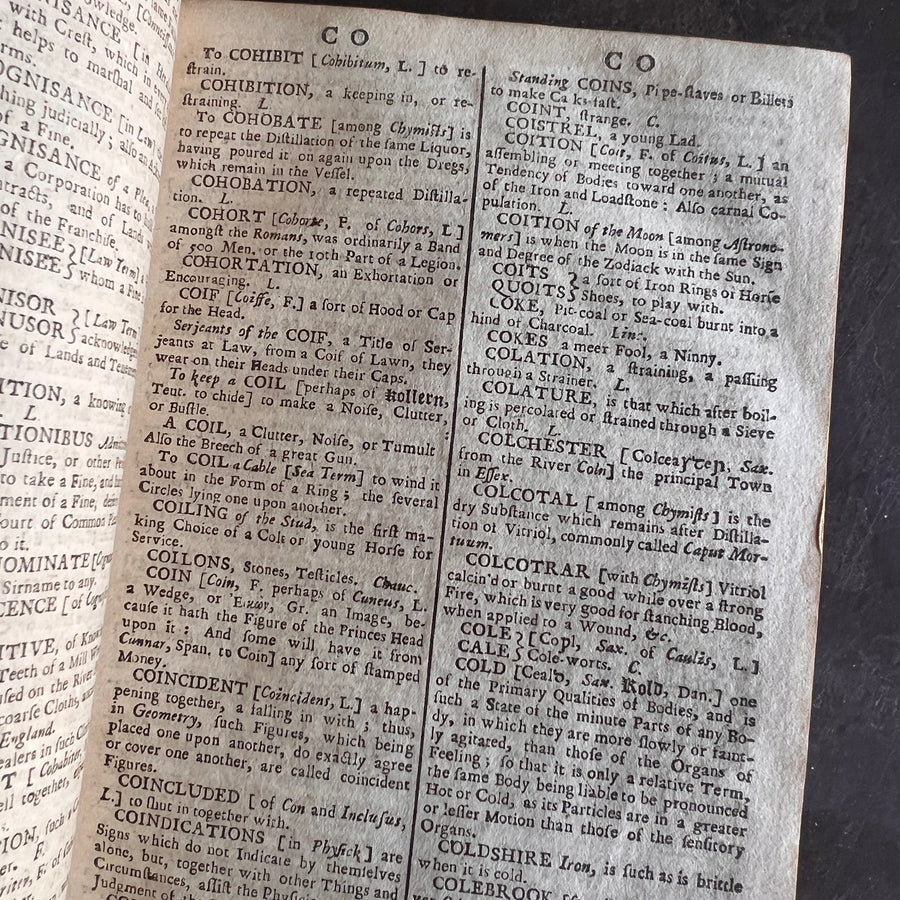 owledge.
with Crest, which in
helps to marshal and
rms.
OGNISANCE [in Law]
hing judicially; also an
of a Fine.
GNISANCE of a Plea,
a Corporation has to
ntracts, and of Lands
of the Franchise.
NISEE } [Law Term] a
NISEE } whom a Fine is
NISOR } [Law Term
NUSOR } acknowledges
e of Lands and Tenements
ITION, a knowing
. L
TIONIBUS Admit
Justice, or other
to take a Fine, and
ment of a Fine,
ourt of Common
o it.
NOMINATE
Sirname to any.
CENCE [of
ITIVE, of
Teeth of a Mill
used on the River
coarse Cloths,
England.
ealers in such
ell together,
CO
To COHIBIT [Cohibitum, L.] to re-
ſtrain.
COHIBITION, a keeping in, or re-
ſtraining. L
To COHOBATE [among Chymiſts] is
to repeat the Diſtillation of the ſame Liquor,
having poured it on again upon the Dregs,
which remain in the Veſſel.
COHOBATION, a repeated Diſtilla-
tion. L.
COHORT [Cohorte, F. of Cohors, L]
amongſt the Romans, was ordinarily a Band
of 500 Men, or the 10th Part of a Legion.
COHORTATION, an Exhortation or
Encouraging. L.
COIF [Coiffe, F.] a ſort of Hood or Cap
for the Head.
Serjeants of the COIF, a Title of Ser-
jeants at Law, from a Coif of Lawn, they
wear on their Heads under their Caps.
To keep a COIL [perhaps of Kollern,
Teut. to chide] to make a Noiſe, Clutter,
or Buſtle.
A COIL, a Clutter, Noiſe, or Tumult:
Alſo the Breech of a great Gun.
To COIL a Cable [Sea Term] to wind it
about in the Form of a Ring; the ſeveral
Circles lying one upon another.
COILING of the Stud, is the firſt ma-
king Choice of a Colt or young Horſe for
Service.
COILONS, Stones, Teſticles. Chauc.
COIN [Coin, F. perhaps of Cuneus, L.
a Wedge, or Εικων, Gr. an Image, be-
cauſe it hath the Figure of the Princes Head
upon it: And ſome will have it from
Cunnar, Span. to Coin] any ſort of ſtamped
Money.
COINCIDENT [Coincidens, L.] a hap-
pening together, a falling in with; thus,
in Geometry, ſuch Figures, which being
placed one upon another, do exactly agree
or cover one another, are called coincident
Figures.
COINCLUDED [of Con and Incluſus,
L.] to ſhut in together with.
COINDICATIONS [in Phyſick] are
Signs which do not Indicate by themſelves
alone, but, together with other Things and
Circumſtances, aſſiſt the Phyſi
Judgment of the
CO
Standing COINS, Pipe-ſtaves or Billets
to make Casks faſt.
COINT, ſtrange. C.
COISTREL, a young Lad.
COITION [Coit, F. of Coitus, L.] an
aſſembling or meeting together; a mutual
Tendency of Bodies toward one another, as
of the Iron and Loadſtone: Alſo carnal Co-
pulation. L.
COITION of the Moon [among Aſtrono-
mers] is when the Moon is in the ſame Sign
and Degree of the Zodiack with the Sun.
COITS } a ſort of Iron Rings or Horſe
QUOITS } Shoes, to play with.
COKE, Pit-coal or Sea-coal burnt into a
hind of Charcoal. Linc.
COKES a meer Fool, a Ninny.
COLATION, a ſtraining, a paſſing
through a Strainer. L.
COLATURE, is that which after boil-
ing is percolated or ſtrained through a Sieve
or Cloth. L.
COLCHESTER [Colceaꞅꞇen, Sax.
from the River Coln] the principal Town
in Eſſex.
COLCOTAL [among Chymiſts] is the
dry Subſtance which remains after Diſtilla-
tion of Vitriol, commonly called Caput Mor-
tuum.
COLCOTRAR [with Chymiſts] Vitriol
calcin'd or burnt a good while over a ſtrong
Fire, which is very good for ſtanching Blood,
when applied to a Wound, &c.
COLE } [Copl, Sax. of Caulis, L.]
CALE } Cole-worts. C.
COLD [Cealꝺ, Sax. Kold, Dan.] one
of the Primary Qualities of Bodies, and is
ſuch a State of the minute Parts of any Bo-
dy, in which they are more ſlowly or faint-
ly agitated, than thoſe of the Organs of
Feeling; ſo that it is only a relative Term,
the ſame Body being liable to be pronounced
Hot or Cold, as its Particles are in a greater
or leſſer Motion than thoſe of the ſenſitory
Organs.
COLDSHIRE Iron, is ſuch as is brittle
when it is cold.
COLEBROOK